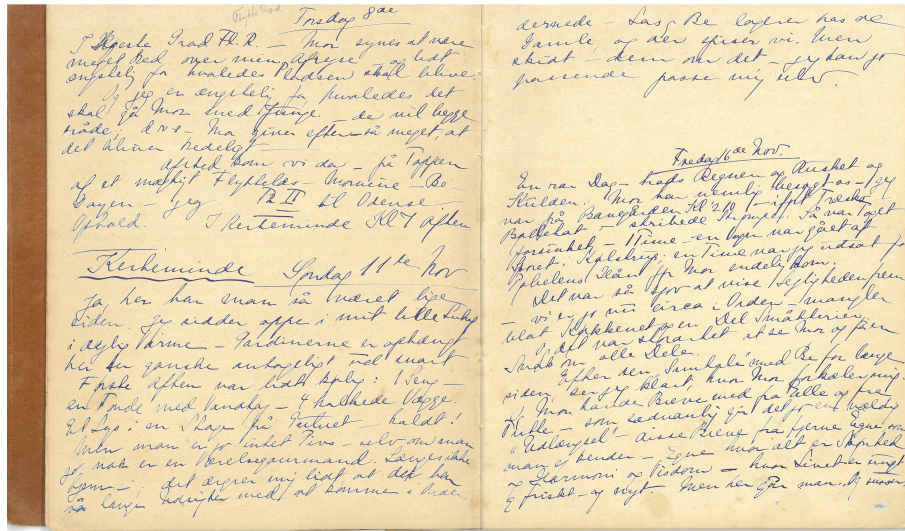 Torsdag 8de
I Højeste Grad Fl. R. – Mor synes at være
meget ked over min Afrejse og lidt
ængstelig for hvorledes Pladsen skal blive.
Og jeg er ængstelig for hvorledes det
skal gå Mor med Junge – de vil begge
råde; d v s – Mor giver efter så meget, at
det bliver kedeligt –
Afsted kom vi da – på Toppen
af et mægtigt Flyttelæs – Mornine – Be-
– jeg. til Odense.
Ophold. I Kerteminde Kl 7 aften
Kerteminde Søndag 11te Nov
Ja her har man så været lige
siden. Jeg sidder oppe i mit lille
i dejlig Varme – Gardinerne er ophængt
her er ganske ud snart
Første aften var lidt kølig: 1 Seng –
en Tønde med Vandfag – 4 kalkede Vægge.
Et Lys i en Stage på Gulvet – koldt!
Men man er jo intet Pivs – selv om man
jo nok er en Værelsesgourmand. Længes ikke
hjem – ; det ærgrer mig lidt at det har
så lange Udsigter med at komme i Orden
dernede – Las og Be logerer hos de
Gamle, og der spiser vi. Men
skidt – dem om det – jeg kan jo
passende passe mig selv.
Fredag 16de Nov.
En rar Dag – trods Regnen og Rusket og
Kulden. Mor har nemlig besøgt os – Jeg
var på Banegården Kl 2 10 – iført Træsko
Ballekat – stribede Strømper. Så var Toget
forsinket – 1 Time – en Vogn var gået af
Sporet i Kølstrup; en Time var jeg udsat for
Pøbelens Hån før Mor endelig kom.
Det var så sjov at vise Lejligheden frem
– vi er jo nu circa i Orden – mangler
blot Køkkenet og en Del Småkterier.
Og det var storartet at se Mor og få en
Snak om alle Dele.
Efter den Samtale med Be for længe
siden, ser jeg klart, hvor Mor forkæler mig.
Mor havde Breve med fra alle og fra
– som sædvanlig går det jo en vældig
"Udlængsel" – disse Breve fra fjerne Egne, som
man ej kender – Egne hvor alt er Skønhed
og Harmoni og Visdom – hvor Livet er ungt
og friskt – og nyt. Men her går man og